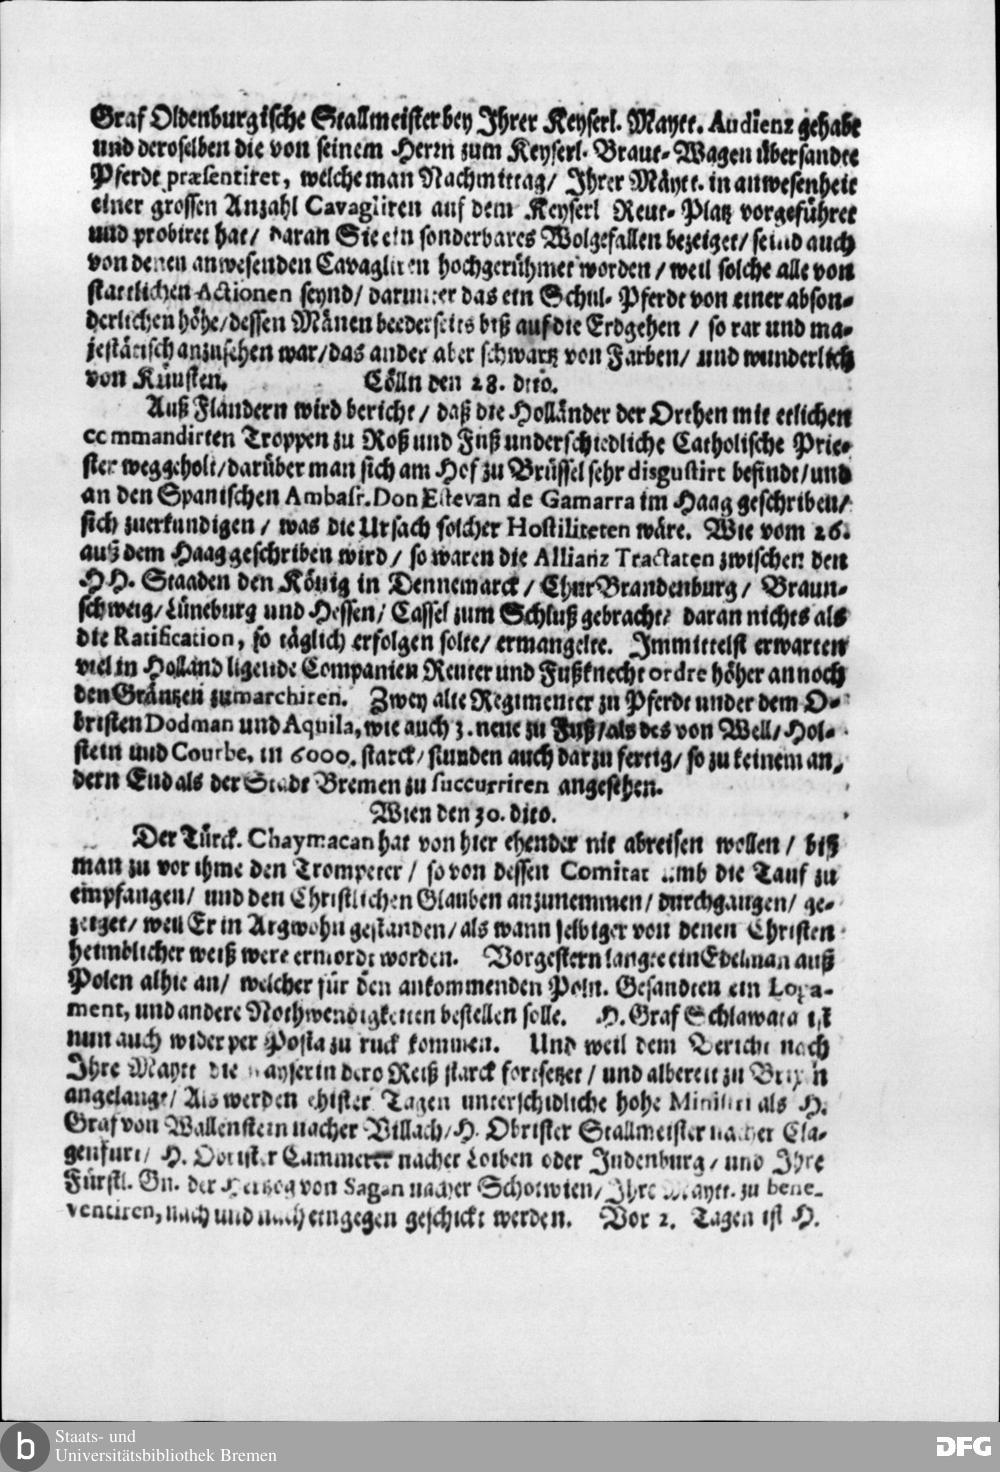 Graf Oldenburgische Stallmeister bey Ihrer Keyserl. Maytt. Audienz gehabt
und deroselben die von seinem Herrn zum Keyserl. Braut-Wagen übersandte
Pferdt præsentiret, welche man Nachmittag/ Ihrer Mäytt. in anwesenheit
einer grossen Anzahl Cavagliren auf dem Keyserl Reut-Platz vorgeführet
und probiret hat/ daran Sie ein sonderbares Wolgefallen bezeiget/ seind auch
von denen anwesenden Cavagliren hochgerühmet worden/ weil solche alle von
stattlichen Actionen seynd/ darunter das ein Schul-Pferdt von einer abson-
derlichen höhe/ dessen Mänen beederseits biß auf die Erd gehen / so rar und ma-
jestätisch anzusehen war/ das ander aber schwartz von Farben/ und wunderlich
von Künsten. Cölln den 28. dito.
Auß Flandern wird bericht/ daß die Holländer der Orthen mit etlichen
commandirten Troppen zu Roß und Fuß underschiedliche Catholische Prie-
ster weggeholt/ darüber man sich am Hof zu Brüssel sehr disgustirt befindt/ und
an den Spanischen Ambass. Don Estevan de Gamarra im Haag geschriben/
sich zuerkundigen/ was die Ursach solcher Hostiliteten wäre. Wie vom 26.
auß dem Haag geschriben wird/ so waren die Allianz Tractaten zwischen den
HH. Staaden den König in Dennemarck/ Chur Brandenburg/ Braun-
schweig/ Lüneburg und Hessen/ Cassel zum Schluß gebracht/ daran nichts als
die Ratification, so täglich erfolgen solte/ ermangelte. Immittelst erwarten
viel in Holland ligende Companien Reuter und Fußknecht ordre höher an noch
den Gräntzen zu marchiren. Zwey alte Regimenter zu Pferdt under dem O-
bristen Dodman und Aquila, wie auch 3. neue zu Fuß/ als des von Well/ Hol-
stein und Courbe, in 6000. starck/ stunden auch darzu fertig/ so zu keinem an-
dern End als der Stadt Bremen zu succurriren angesehen.
Wien den 30. dito.
Der Türck. Chaymacan hat von hier ehender nit abreisen wollen / biß
man zu vor ihme den Trompeter/ so von dessen Comitat umb die Tauf zu
empfangen/ und den Christlichen Glauben anzunemmen/ durchgangen/ ge-
zeiget/ weil Er in Argwohn gestanden/ als wann selbiger von denen Christen
heimblicher weiß were ermordt worden. Vorgestern langte ein Edelman auß
Polen alhie an/ welcher für den ankommenden Poln. Gesandten ein Loga-
ment, und andere Nothwendigkeiten bestellen solle. H. Graf Schlawata ist
nun auch wider per Posta zu ruck kommen. Und weil dem Bericht nach
Ihre Maytt die Kayserin dero Reiß starck fortsetzet/ und albereit zu Brixen
angelangt/ Als werden ehister Tagen unterschidliche hohe Ministri als H.
Graf von Wallenstein nacher Villach/ H. Obrister Stallmeister nacher Cla-
genfurt/ H. Obrister Cammerer nacher Loiben oder Judenburg/ und Ihre
Fürstl. Gn. der Hertzog von Sagan nacher Schotwien/ Ihre Maytt. zu bene-
ventiren, nach und nach entgegen geschickt werden. Vor 2. Tagen ist H.
b Staats- und
Universitätsbibliothek Bremen
DFG